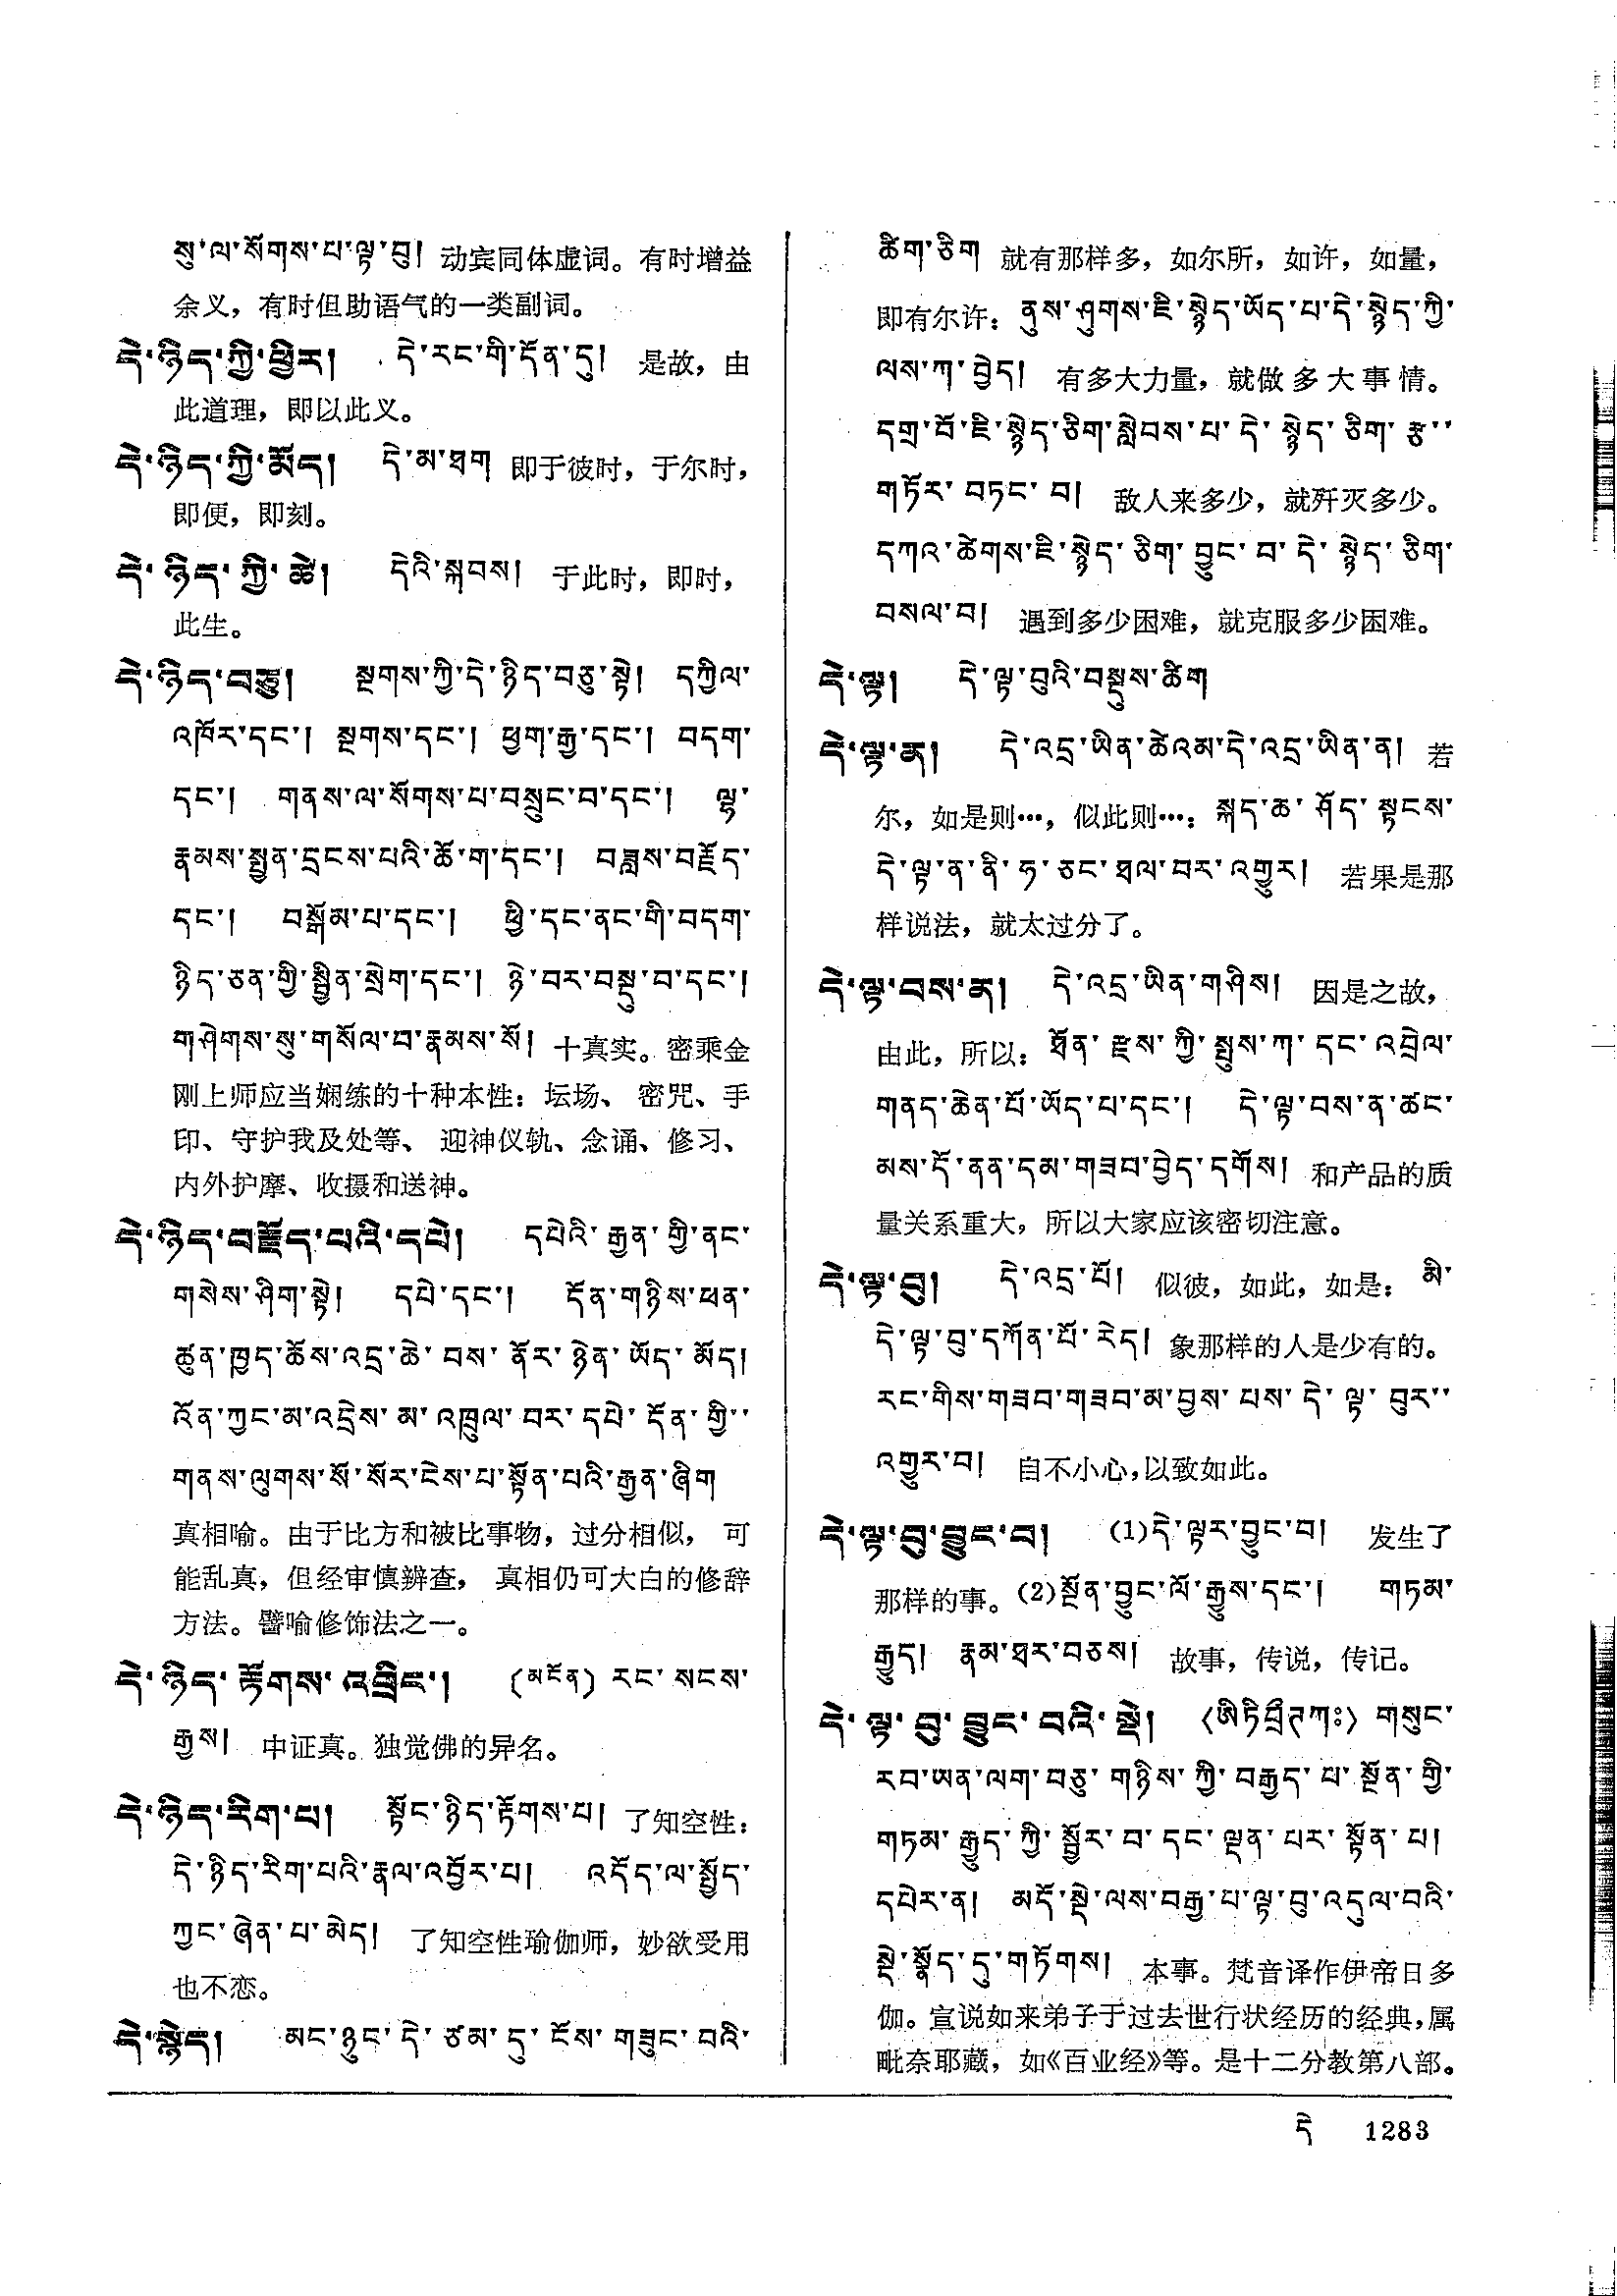 སུ་ལ་སོགས་པ་ལྟ་བུ། 动宾同体虚词。有时增益
余义，有时但助语气的一类副词。
དེ་ཉིད་ཀྱི་ཕྱིར། དེ་རང་གི་དོན་དུ། 是故，由
此道理，即以此义。
དེ་ཉིད་ཀྱི་མོད། དེ་མ་ཐག 即于彼时，于尔时，
即便，即刻。
དེ་ཉིད་ཀྱི་ཚེ། དེའི་སྐབས། 于此时，即时，
此生。
དེ་ཉིད་བཅུ། སྔགས་ཀྱི་དེ་ཉིད་བཅུ་སྟེ། དཀྱིལ་
འཁོར་དང་། སྔགས་དང་། ཕྱག་རྒྱ་དང་། བདག་
དང་། གནས་ལ་སོགས་པ་བསྲུང་བ་དང་། ལྷ་
རྣམས་སྤྱན་དྲངས་པའི་ཆོ་ག་དང་། བཟླས་བརྗོད་
དང་། བསྒོམ་པ་དང་། ཕྱི་དང་ནང་གི་བདག་
ཉིད་ཅན་གྱི་སྦྱིན་སྲེག་དང་། ཉེ་བར་བསྡུ་བ་དང་།
གཤེགས་སུ་གསོལ་བ་རྣམས་སོ། 十真实。密乘金
刚上师应当娴练的十种本性：坛场、密咒、手
印、守护我及处等、迎神仪轨、念诵、修习、
内外护摩、收摄和送神。
དེ་ཉིད་བརྗོད་པའི་དཔེ། དཔེའི་རྒྱན་གྱི་ནང་
གསེས་ཤིག་སྟེ། དཔེ་དང་། དོན་གཉིས་ཕན་
ཚུན་ཁྱད་ཆོས་འདྲ་ཆེ་བས་ནོར་ཉེན་ཡོད་མོད།
འོན་ཀྱང་མ་འདྲེས་མ་འཁྲུལ་བར་དཔེ་དོན་གྱི་་
གནས་ལུགས་སོ་སོར་ངེས་པ་སྟོན་པའི་རྒྱན་ཞིག
真相喻。由于比方和被比事物，过分相似，可
能乱真，但经审慎辨查，真相仍可大白的修辞
方法。譬喻修饰法之一。
དེ་ཉིད་རྟོགས་འབྲིང་། (མངོན) རང་སངས་
རྒྱས། 中证真。独觉佛的异名。
དེ་ཉིད་རིག་པ། སྟོང་ཉིད་རྟོགས་པ། 了知空性：
དེ་ཉིད་རིག་པའི་རྣལ་འབྱོར་པ། འདོད་ལ་སྤྱོད་
ཀྱང་ཞེན་པ་མེད། 了知空性瑜伽师，妙欲受用
也不恋。
དེ་སྙེད། མང་ཉུང་དེ་ཙམ་དུ་ངོས་གཟུང་བའི་
ཚིག་ཅིག 就有那样多，如尔所，如许，如量，
即有尔许：ནུས་ཤུགས་ཇི་སྙེད་ཡོད་པ་དེ་སྙེད་ཀྱི་
ལས་ཀ་བྱེད། 有多大力量，就做多大事情。
དགྲ་བོ་ཇི་སྙེད་ཅིག་སླེབས་པ་དེ་སྙེད་ཅིག་རྩ་་
གཏོར་བཏང་བ། 敌人来多少，就歼灭多少。
དཀའ་ཚེགས་ཇི་སྙེད་ཅིག་བྱུང་བ་དེ་སྙེད་ཅིག་
བསལ་བ། 遇到多少困难，就克服多少困难。
དེ་ལྟ། དེ་ལྟ་བུའི་བསྡུས་ཚིག
དེ་ལྟ་ན། དེ་འདྲ་ཡིན་ཚེའམ་དེ་འདྲ་ཡིན་ན། 若
尔，如是则…，似此则…：སྐད་ཆ་ཤོད་སྟངས་
དེ་ལྟ་ན་ནི་ཧ་ཅང་ཐལ་བར་འགྱུར། 若果是那
样说法，就太过分了。
དེ་ལྟ་བས་ན། དེ་འདྲ་ཡིན་གཤིས། 因是之故，
由此，所以：ཐོན་རྫས་ཀྱི་སྤུས་ཀ་དང་འབྲེལ་
གནད་ཆེན་པོ་ཡོད་པ་དང་། དེ་ལྟ་བས་ན་ཚང་
མས་དོ་ནན་དམ་གཟབ་བྱེད་དགོས། 和产品的质
量关系重大，所以大家应该密切注意。
དེ་ལྟ་བུ། དེ་འདྲ་པོ། 似彼，如此，如是：མི་
དེ་ལྟ་བུ་དཀོན་པོ་རེད། 象那样的人是少有的。
རང་གིས་གཟབ་གཟབ་མ་བྱས་པས་དེ་ལྟ་བུར་་
འགྱུར་བ། 自不小心，以致如此。
དེ་ལྟ་བུ་བྱུང་བ། (1)དེ་ལྟར་བྱུང་བ། 发生了
那样的事。(2)སྔོན་བྱུང་ལོ་རྒྱུས་དང་། གཏམ་
རྒྱུད། རྣམ་ཐར་བཅས། 故事，传说，传记。
དེ་ལྟ་བུ་བྱུང་བའི་སྡེ། 〈ཨིཏིབྲྀཏཀཿ〉གསུང་
རབ་ཡན་ལག་བཅུ་གཉིས་ཀྱི་བརྒྱད་པ་སྔོན་གྱི་
གཏམ་རྒྱུད་ཀྱི་སྦྱོར་བ་དང་ལྡན་པར་སྟོན་པ།
དཔེར་ན། མདོ་སྡེ་ལས་བརྒྱ་པ་ལྟ་བུ་འདུལ་བའི་
སྡེ་སྣོད་དུ་གཏོགས། 本事。梵音译作伊帝日多
伽。宣说如来弟子于过去世行状经历的经典，属
毗奈耶藏，如《百业经》等。是十二分教第八部。
དེ 1283